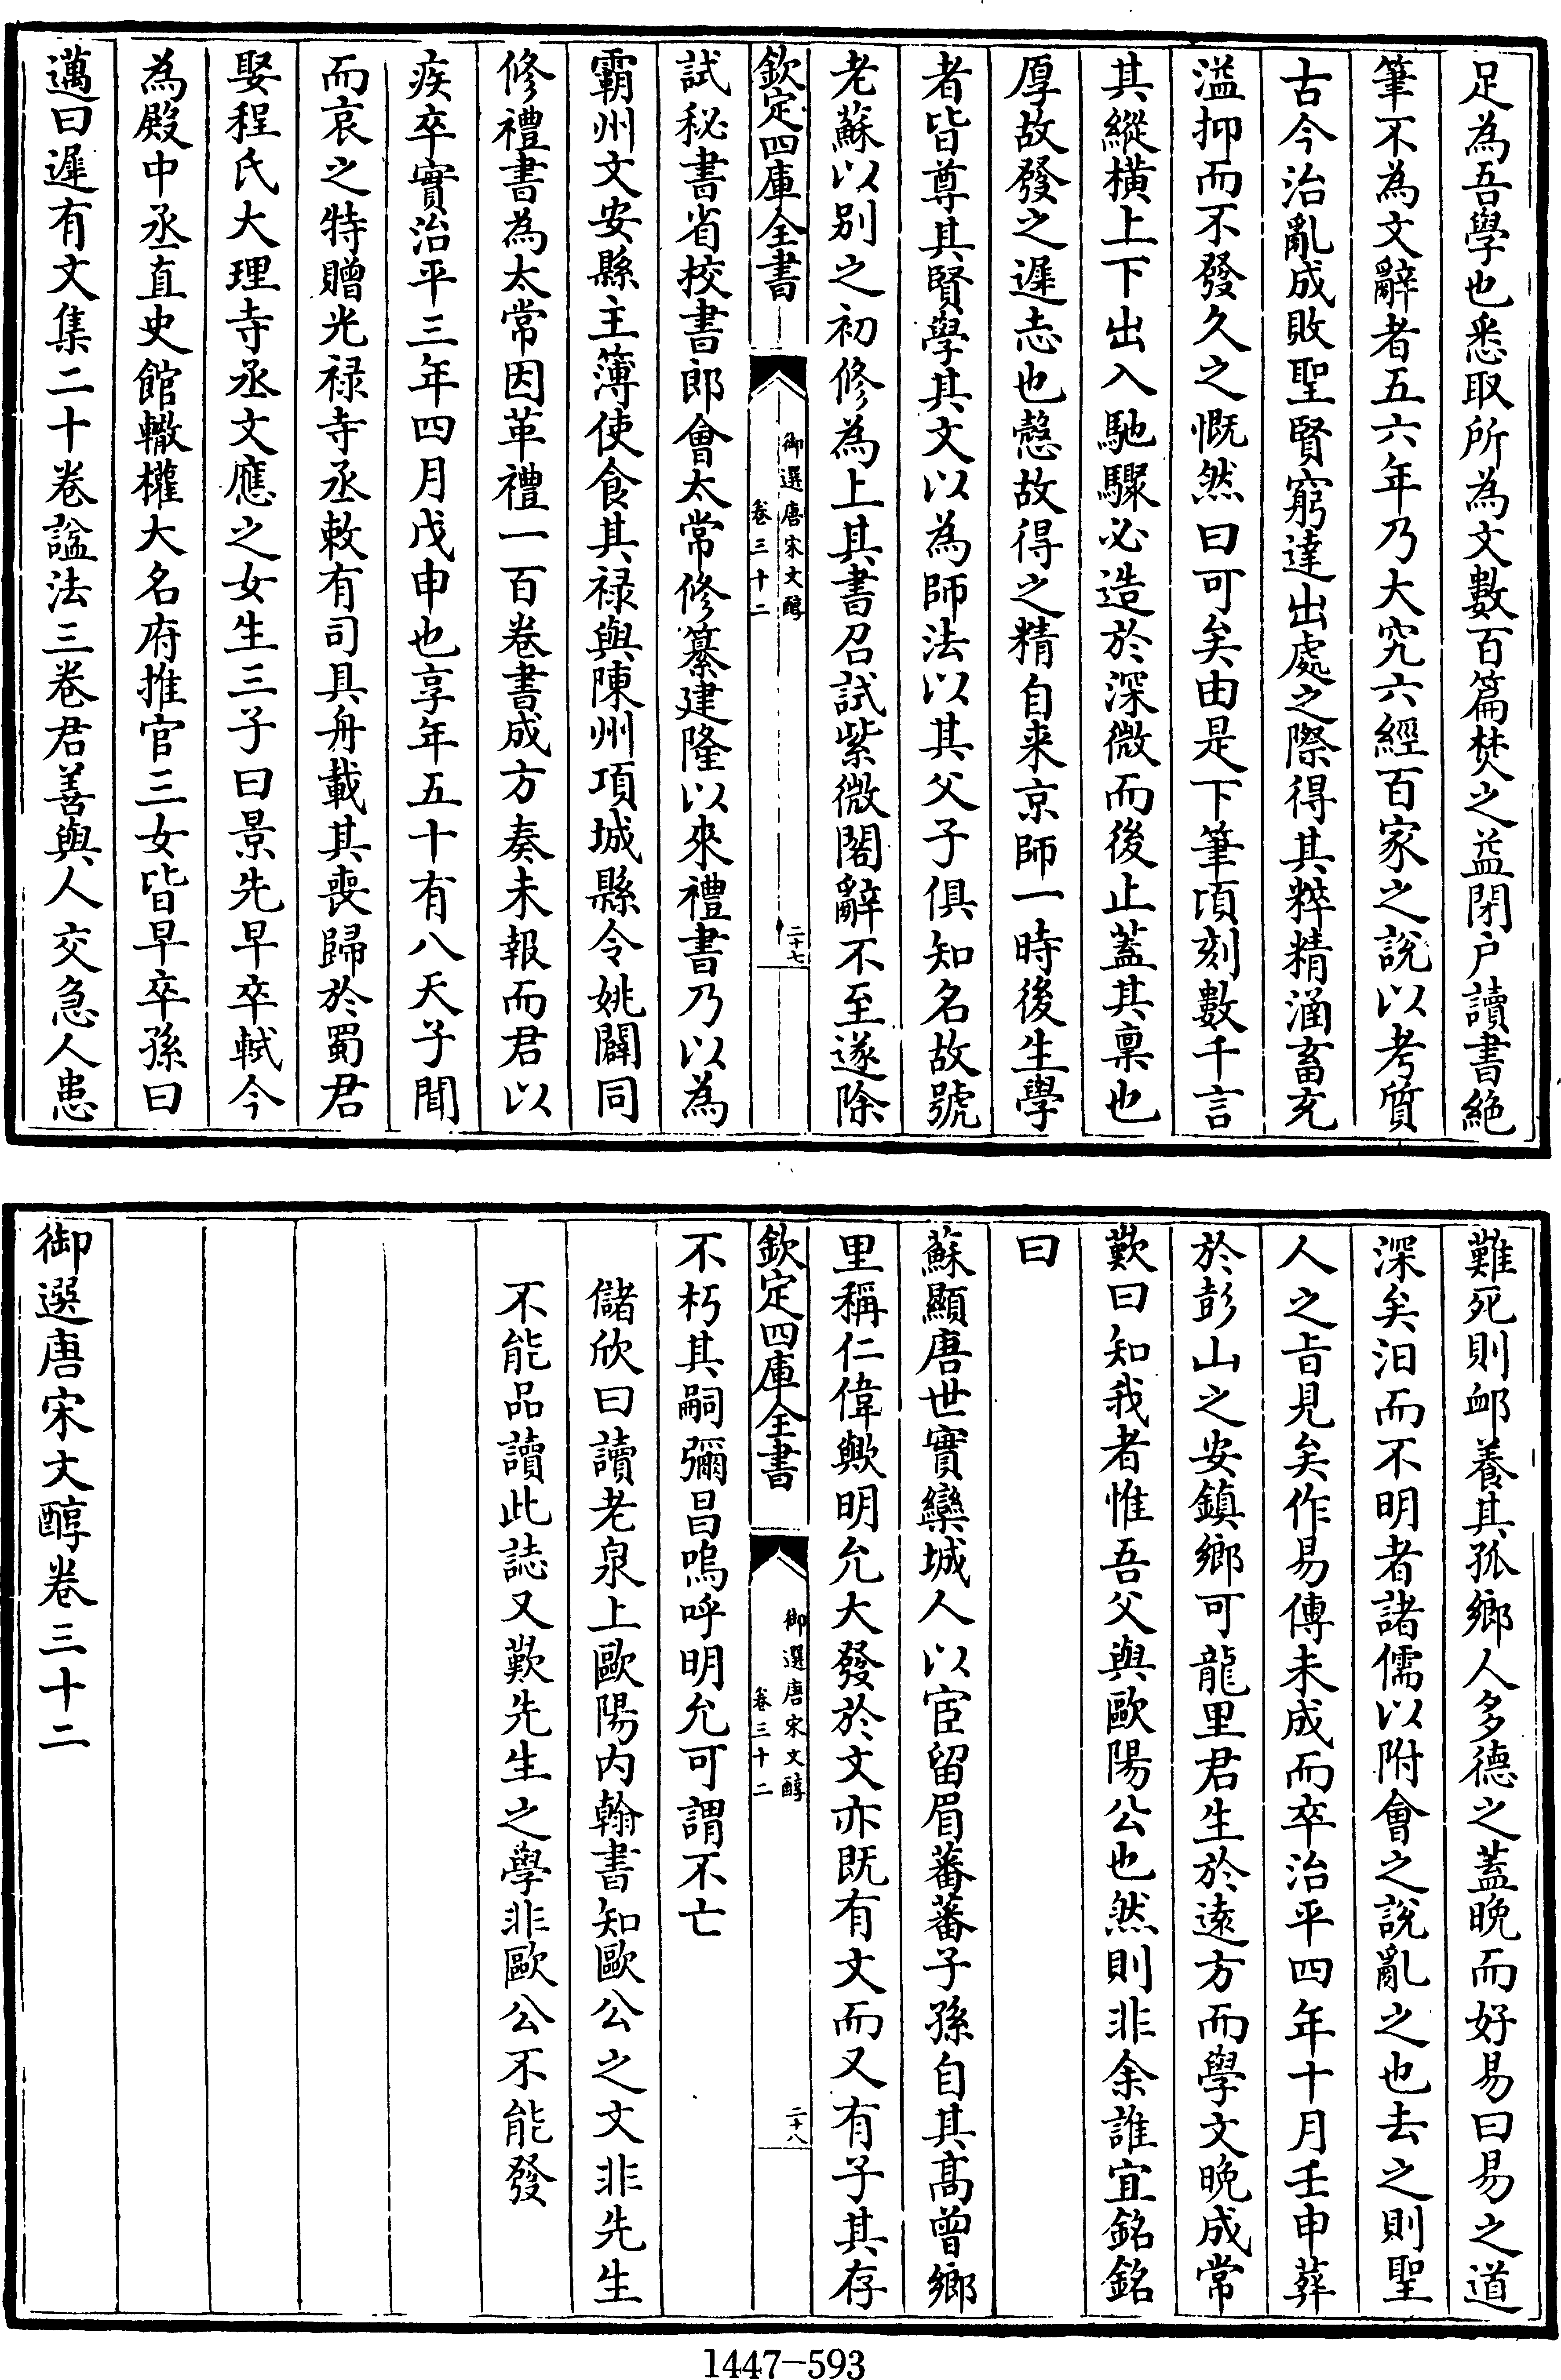 足為吾學也悉取所為文數百篇焚之益閉户讀書絶
筆不為文辭者五六年乃大究六經百家之說以考質
古今治亂成敗聖賢窮達出處之際得其粹精涵畜充
溢抑而不發久之慨然曰可矣由是下筆頃刻數千言
其縱橫上下出入馳驟必造於深微而後止蓋其禀也
厚故發之遲志也慤故得之精自来京師一時後生學
者皆尊其賢學其文以為師法以其父子俱知名故號
老蘇以别之初修為上其書召試紫微閣辭不至遂除
欽定四庫全書
御選唐宋文醇
卷三十二
二十七
試秘書省挍書郎會太常修纂建隆以來禮書乃以為
霸州文安縣主簿使食其禄與陳州項城縣令姚闢同
修禮書為太常因革禮一百卷書成方奏未報而君以
疾卒實治平三年四月戊申也享年五十有八天子聞
而哀之特贈光禄寺丞敕有司具舟載其喪歸於蜀君
娶程氏大理寺丞文應之女生三子曰景先早卒軾今
為殿中丞直史館轍權大名府推官三女皆早卒孫曰
邁曰遲有文集二十卷諡法三卷君善與人交急人患
難死則卹養其孤鄉人多德之蓋晚而好易曰易之道
深矣汨而不明者諸儒以附會之說亂之也去之則聖
人之旨見矣作易傳未成而卒治平四年十月壬申葬
於彭山之安鎮鄉可龍里君生於逺方而學文晚成常
歎曰知我者惟吾父與歐陽公也然則非余誰宜銘銘
曰
蘇顯唐世實欒城人以宦留眉蕃蕃子孫自其髙曾鄉
里稱仁偉歟明允大發於文亦既有文而又有子其存
欽定四庫全書
御選唐宋文醇
卷三十二
二十八
不朽其嗣彌昌嗚呼明允可謂不亡
儲欣曰讀老泉上歐陽内翰書知歐公之文非先生
不能品讀此誌又歎先生之學非歐公不能發
御選唐宋文醇卷三十二
1447—593